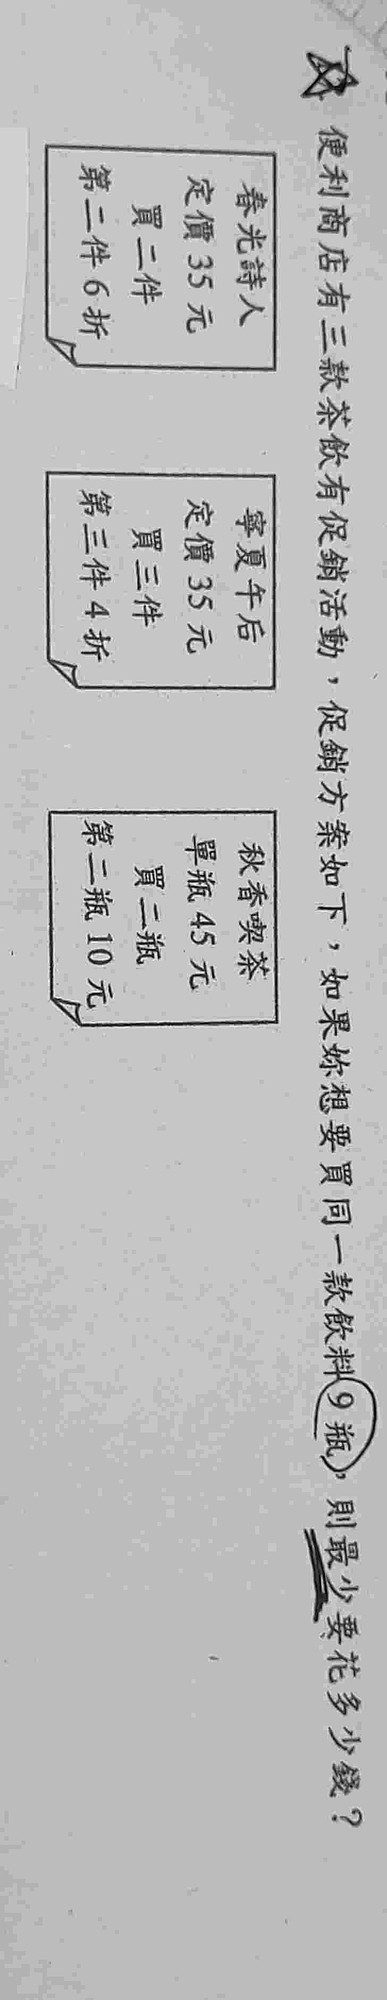 便利商店有三款茶飲有促銷活動，促銷方案如下，如果妳想要買同一款飲料9瓶，則最少要花多少錢？
春光詩人
定價35元
買二件
第二件6折
寧夏午后
定價35元
買三件
第三件4折
秋香喫茶
單瓶45元
買二瓶
第二瓶10元